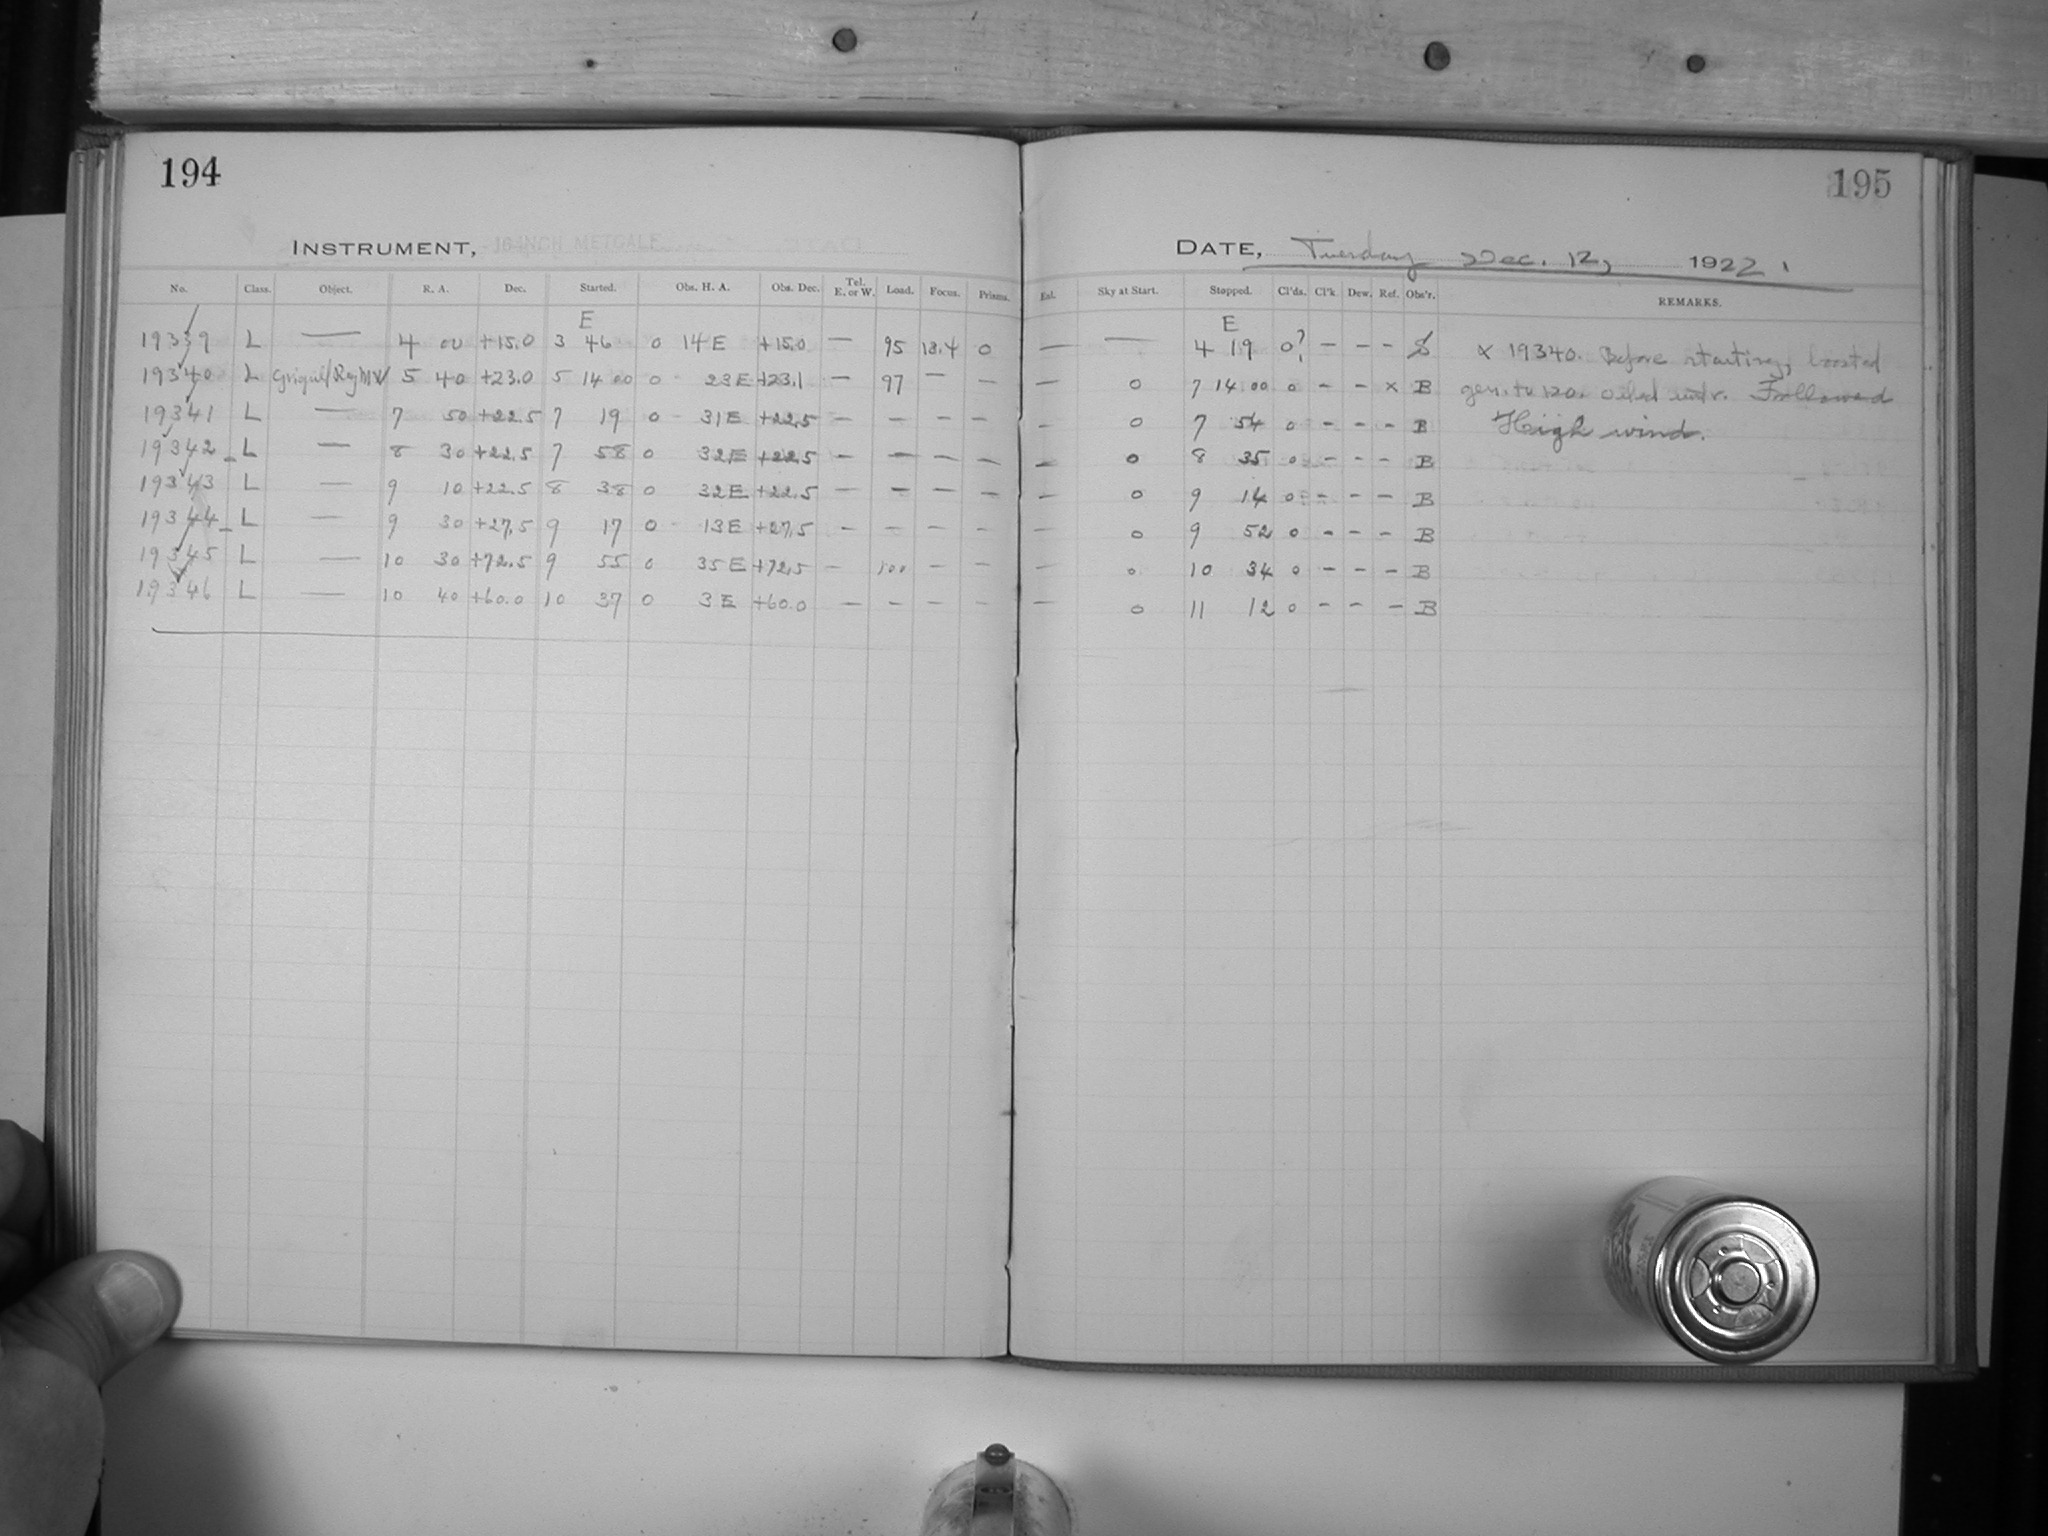 194
195
INSTRUMENT, 16-INCH METCALF
DATE, Tuesday Dec. 12, 1922.
No. Class. Object. R. A. Dec. Started. Obs. H. A. Obs. Dec. Tel. E. or W. Load. Focus. Prisms. Exl. Sky at Start. Stopped. Cl'ds. Cl'k Dew. Ref. Obs'r. REMARKS.
E E
19339 L — 4 00 +15.0 3 46 0 14 E +15.0 — 95 13.4 0 — — 4 19 0? – – – S x 19340. Before starting, boosted
19340 L 5 40 +23.0 5 14 00 0 23 E +23.1 — 97 — — — 0 7 14 00 0 – – x B gen. to 120. Oiled Followed
19341 L — 7 50 +22.5 7 19 0 31 E +22.5 — — — — – 0 7 54 0 – – – B High wind.
19342 L — 8 30 +22.5 7 58 0 32 E +22.5 — — — — — 0 8 35 0 – – – B
19343 L — 9 10 +22.5 8 38 0 32 E +22.5 — — — — — 0 9 14 0 – – – B
19344 L — 9 30 +27.5 9 17 0 13 E +27.5 — — — — — 0 9 52 0 – – – B
19345 L — 10 30 +72.5 9 55 0 35 E +72.5 — 100 — — — 0 10 34 0 – – – B
19346 L — 10 40 +60.0 10 37 0 3 E +60.0 — — — — — 0 11 12 0 – – – B